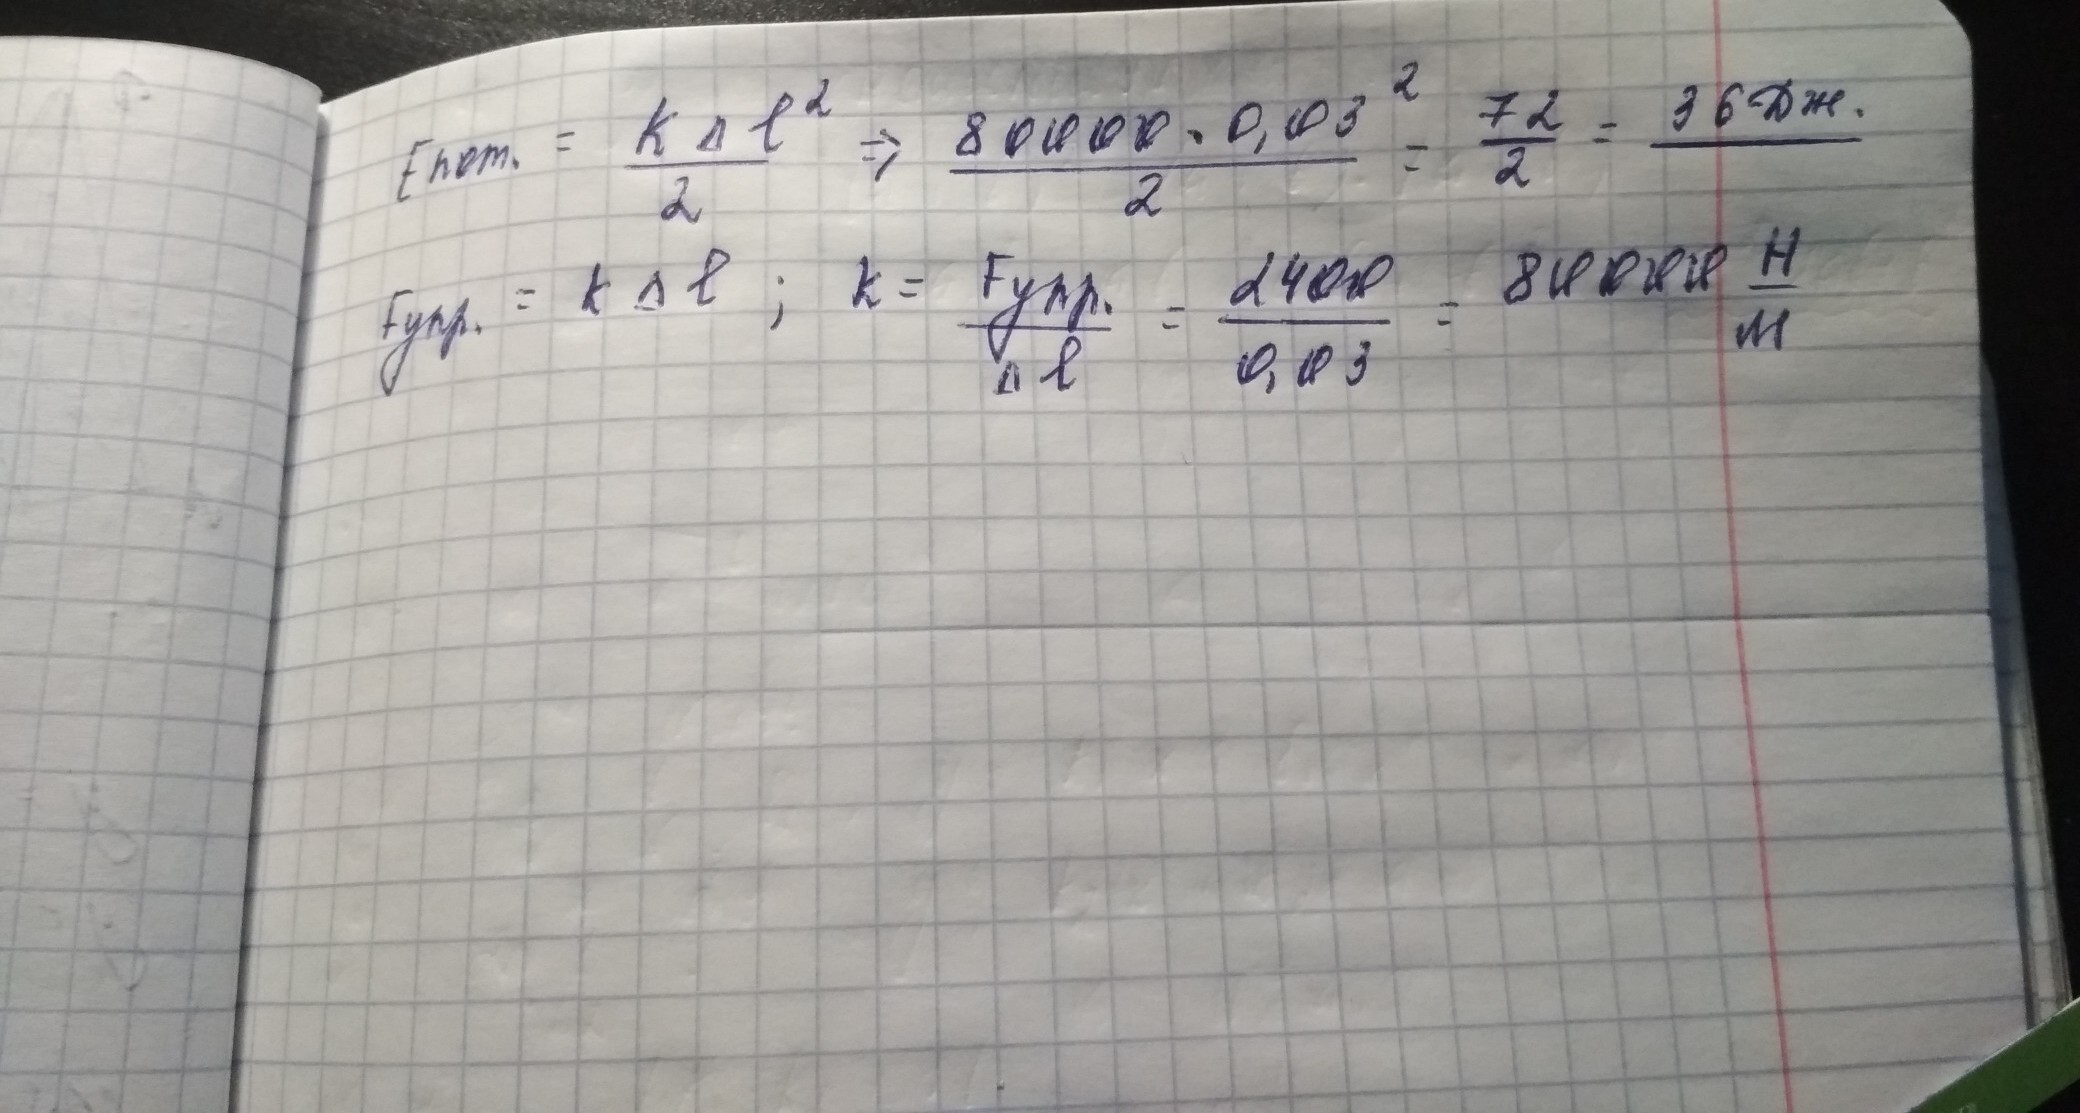 Eпот. = kΔl²/2 => 80000·0,03²/2 = 72/2 = 36 Дж.
Fупр. = kΔl ; k = Fупр./Δl = 2400/0,03 = 80000 Н/м